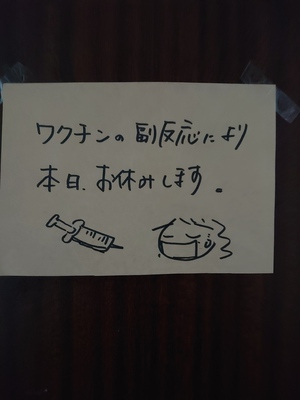 ワクチンの副反応により
本日、お休みします。